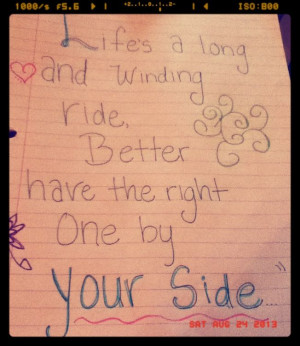 1000/s f5.6
+2..1..0..1..2-
ISO:800
Life's a long
and winding
ride,
Better
have the right
One by
your Side..."
SAT AUG 24 2013